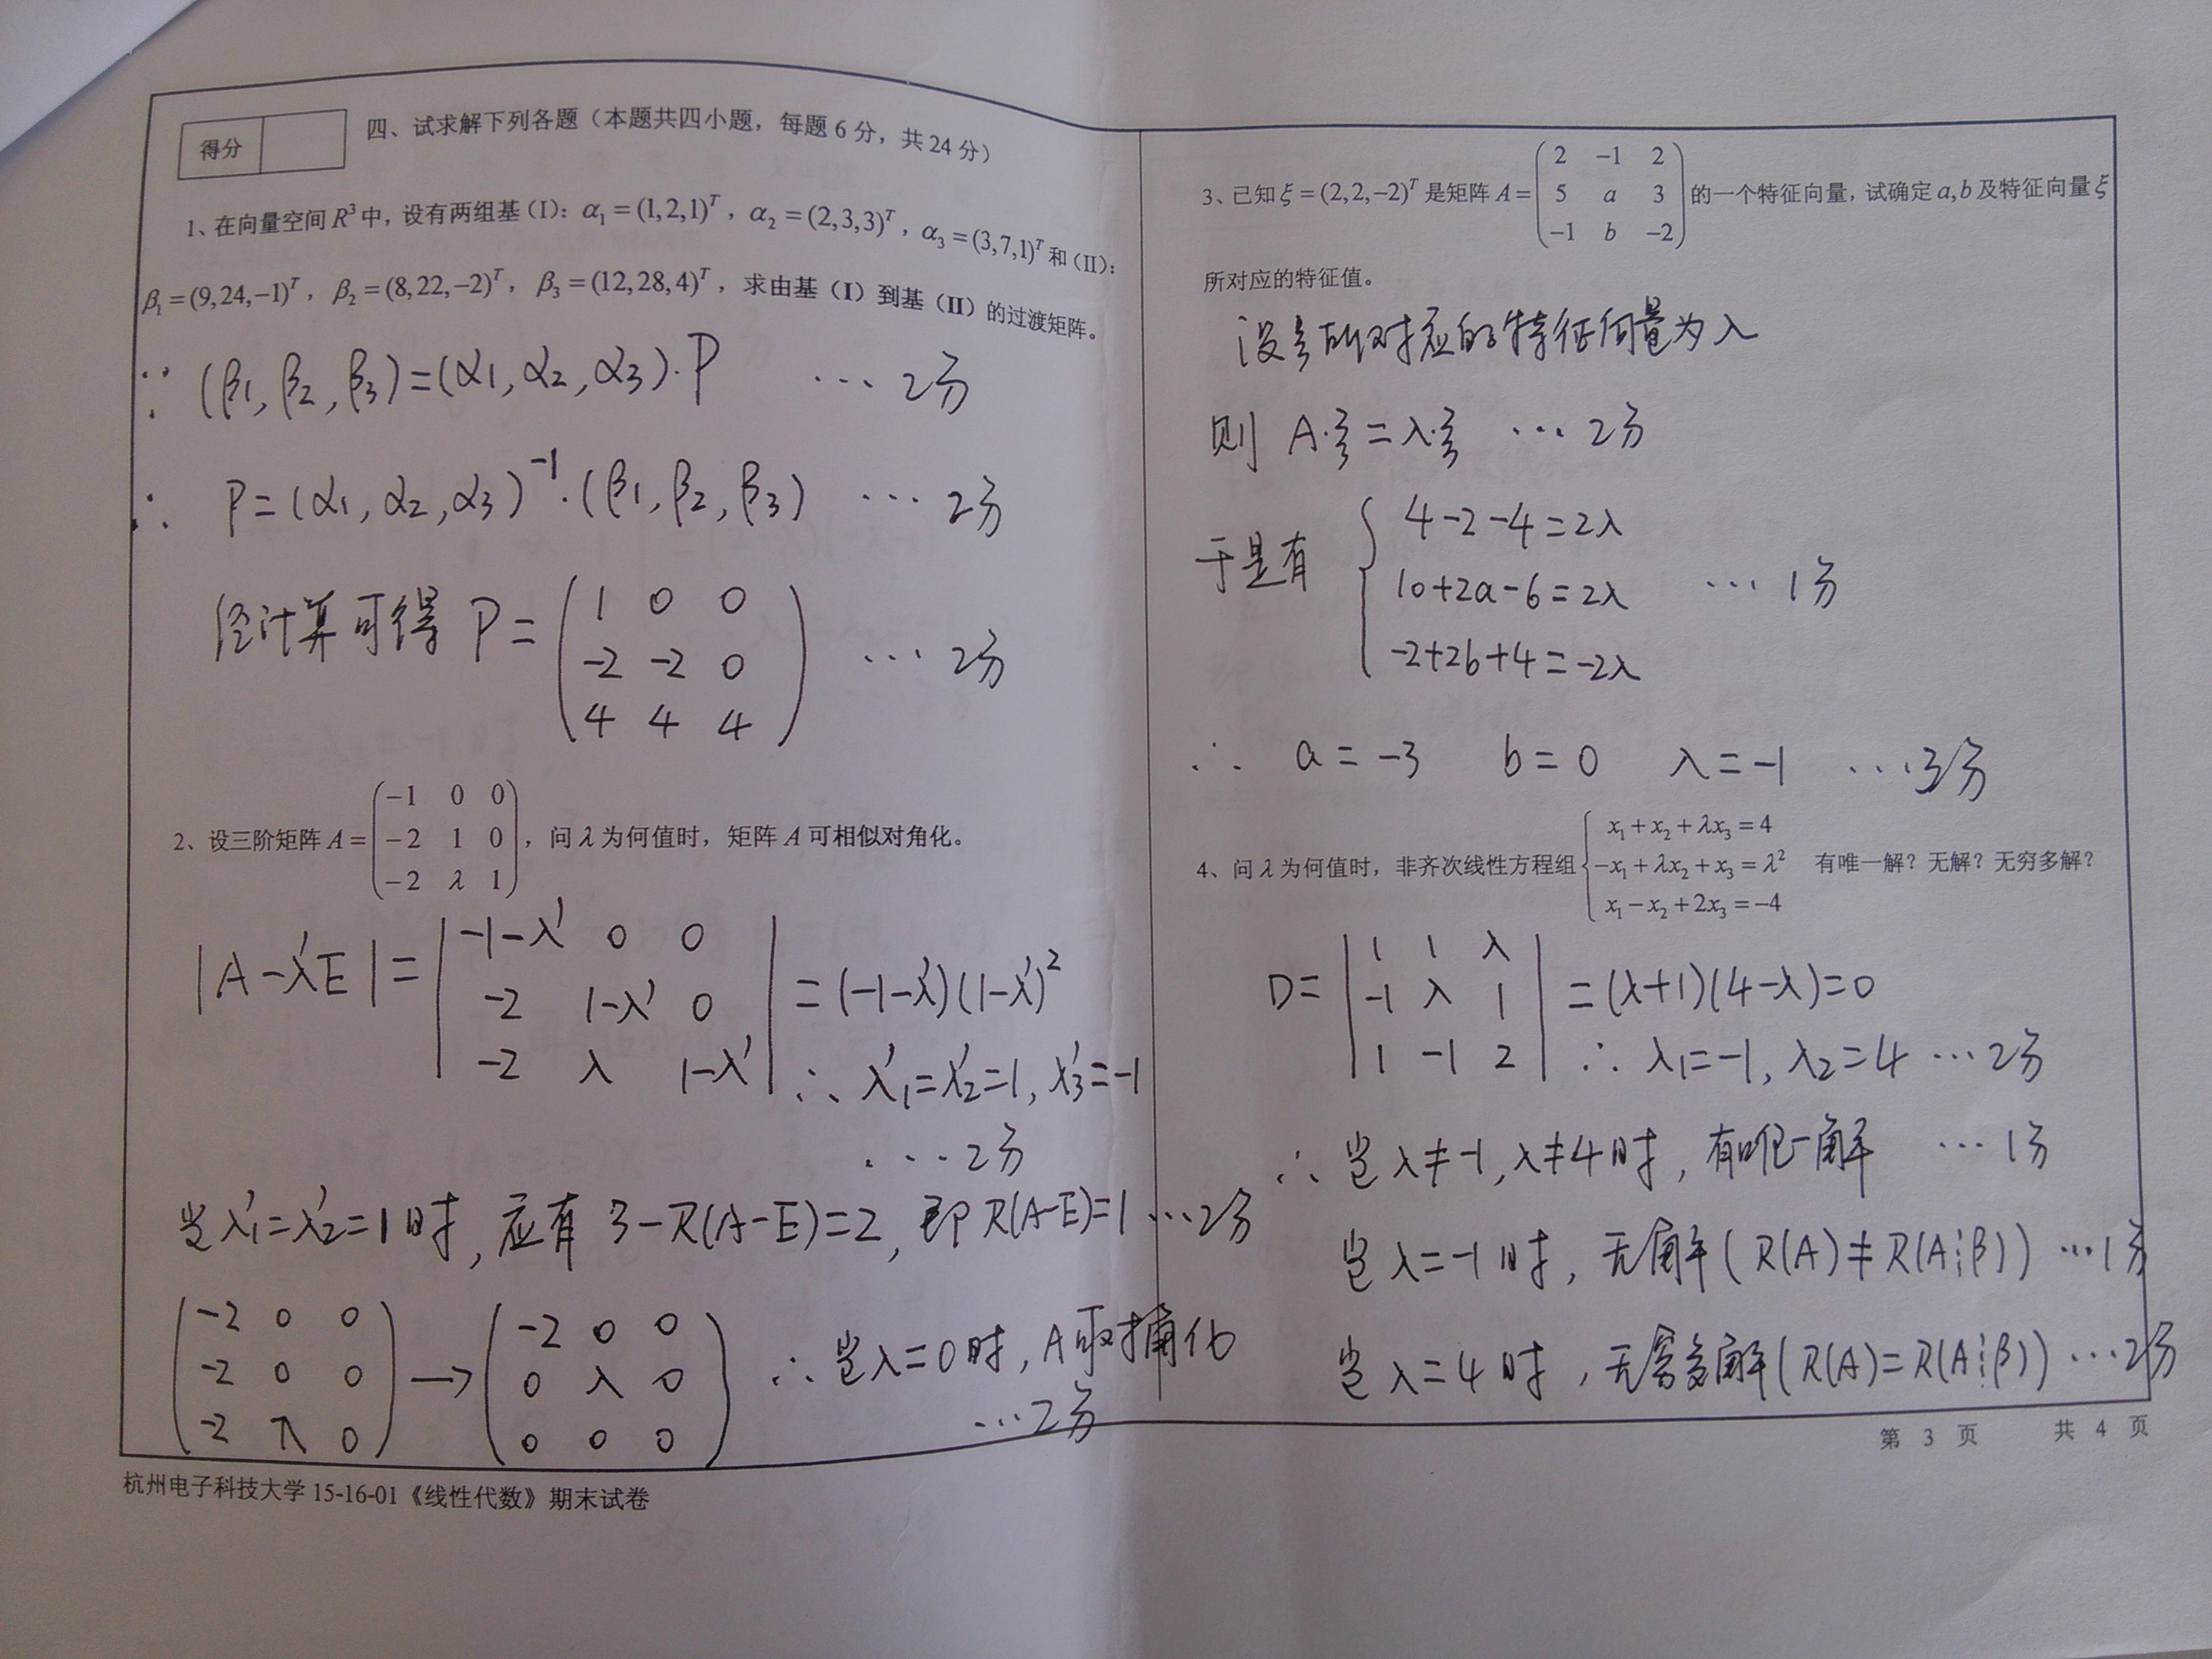 得分
四、试求解下列各题（本题共四小题，每题6分，共24分）
1、在向量空间 R³ 中，设有两组基(I)：α₁ = (1,2,1)ᵀ，α₂ = (2,3,3)ᵀ，α₃ = (3,7,1)ᵀ 和(II)：
β₁ = (9,24,−1)ᵀ，β₂ = (8,22,−2)ᵀ，β₃ = (12,28,4)ᵀ，求由基（I）到基（II）的过渡矩阵。
∵ (β₁, β₂, β₃) = (α₁, α₂, α₃)·P … 2分
∴ P = (α₁, α₂, α₃)⁻¹·(β₁, β₂, β₃) … 2分
经计算可得 P = ( 1 0 0
-2 -2 0
4 4 4 ) … 2分
2、设三阶矩阵 A = ( −1 0 0
−2 1 0
−2 λ 1 )，问 λ 为何值时，矩阵 A 可相似对角化。
|A − λ'E| = | −1−λ' 0 0
−2 1−λ' 0
−2 λ 1−λ' | = (−1−λ')(1−λ')²
∴ λ'₁ = λ'₂ = 1, λ'₃ = −1
… 2分
当 λ'₁ = λ'₂ = 1 时，应有 3 − R(A−E) = 2，即 R(A−E) = 1 … 2分
( −2 0 0
−2 0 0
−2 λ 0 ) → ( −2 0 0
0 λ 0
0 0 0 ) ∴ 当 λ = 0 时，A可对角化
… 2分
杭州电子科技大学 15-16-01《线性代数》期末试卷
3、已知 ξ = (2,2,−2)ᵀ 是矩阵 A = ( 2 −1 2
5 a 3
−1 b −2 ) 的一个特征向量，试确定 a,b 及特征向量 ξ
所对应的特征值。
设ξ所对应的特征向量为λ
则 A·ξ = λ·ξ … 2分
于是有 { 4−2−4 = 2λ
10+2a−6 = 2λ … 1分
−2+2b+4 = −2λ
∴ a = −3 b = 0 λ = −1 … 3分
4、问 λ 为何值时，非齐次线性方程组 { x₁ + x₂ + λx₃ = 4
−x₁ + λx₂ + x₃ = λ² 有唯一解？无解？无穷多解？
x₁ − x₂ + 2x₃ = −4
D = | 1 1 λ
−1 λ 1
1 −1 2 | = (λ+1)(4−λ) = 0
∴ λ₁ = −1, λ₂ = 4 … 2分
∴ 当 λ ≠ −1, λ ≠ 4 时，有唯一解 … 1分
当 λ = −1 时，无解 ( R(A) ≠ R(A⋮β) ) … 1分
当 λ = 4 时，无穷多解 ( R(A) = R(A⋮β) ) … 2分
第 3 页 共 4 页